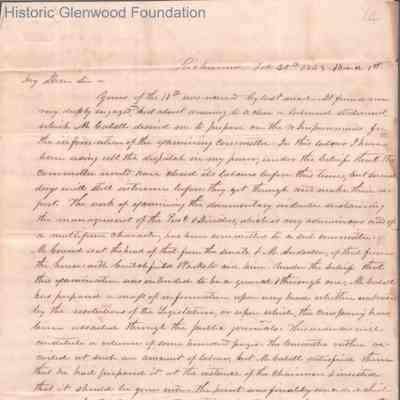 Historic Glenwood Foundation
Richmond Feb 28th 1843 March 1st
My Dear Sir
Yours of the 18th was received by last mail. It found me
very deeply engaged, and about drawing to a close a laboured statement
which Mr Cabell desired me to prepare on the
the information of the examining Committee. In this labour I have
been using all the dispatch in my power, under the belief that the
Committee would have closed its labours before this time, but several
days will still intervene before they get through and make their re-
port. The work of examining the documentary evidence sustaining
the management of the Prest & Directors, which is very voluminous and of
a multiform character, has been committed to a sub committee,
Mr is at the head of that from the Senate & Mr Anderson of that from
the house, with Critchfield &
this examination was intended to be a general & thorough one, Mr Cabell
has prepared a mass of information upon every head whether embraced
by the resolutions of the Legislature, or upon which, the company have
been assailed through the public journals. This evidence will
constitute a volume of some hundred pages. The Committee rather re-
coiled at such an amount of labour, but Mr Cabell satisfied them
that he had prepared it at the instance of the Chairman & insisted
that it should be gone into. The point was finally conceded